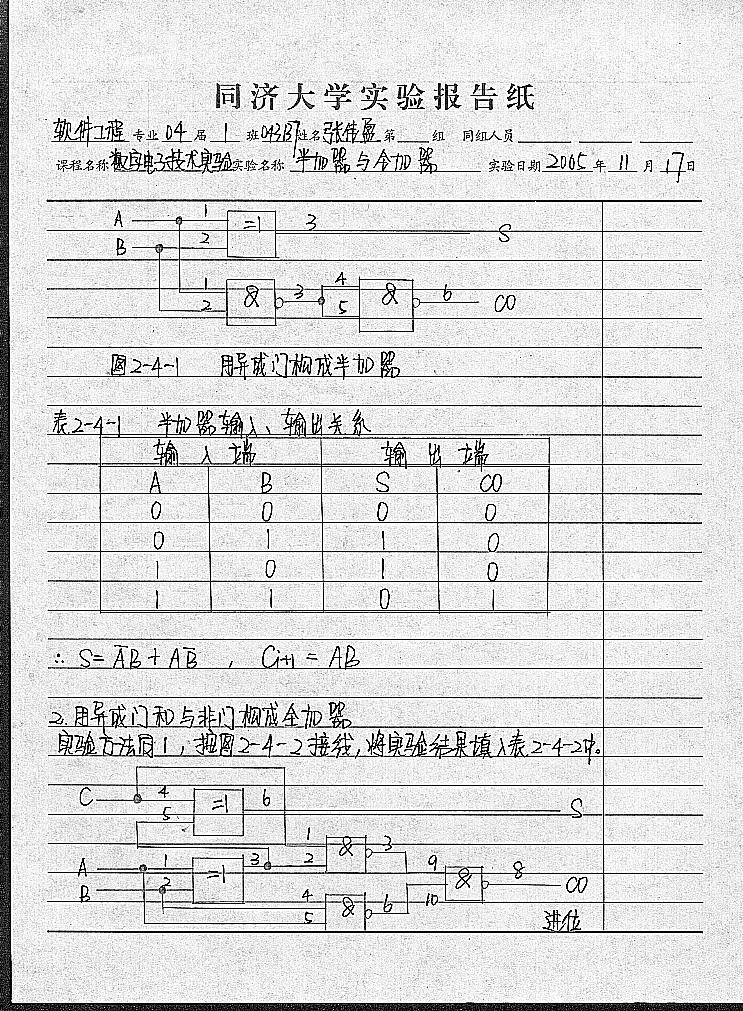 同济大学实验报告纸
软件工程 专业 04 届 1 班 043137 姓名 张伟 第 组 同组人员
课程名称 数字电子技术实验 实验名称 半加器与全加器 实验日期 2005 年 11 月 17 日
A 1 =1 3 S
B 2
1 & 3 4 & 6 CO
2 5
图2-4-1 用异或门构成半加器
表2-4-1 半加器输入、输出关系
输入端 输出端
A B S CO
0 0 0 0
0 1 1 0
1 0 1 0
1 1 0 1
∴ S=A̅B+AB̅ , Ci+1=AB
2.用异或门和与非门构成全加器
实验方法同1,按图2-4-2接线,将实验结果填入表2-4-2中。
C 4 =1 6 S
5
1 & 3
A 1 =1 3 2 9 & 8 CO
B 2 4 & 6 10
5 进位